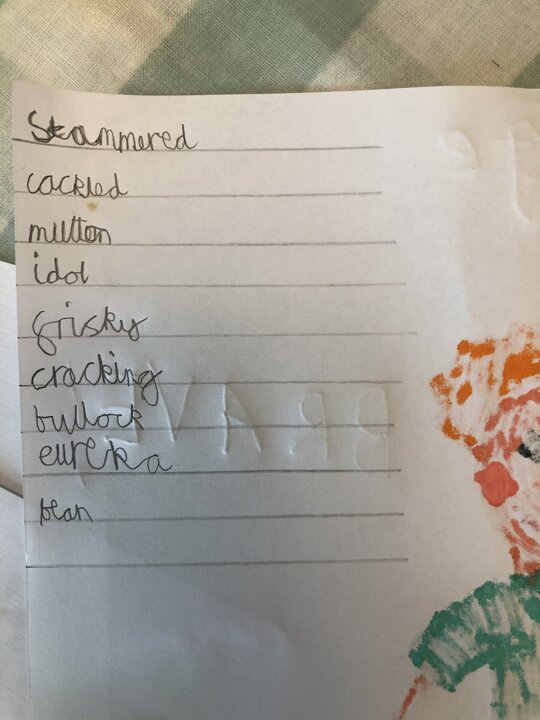 Stammered
cackled
mutton
idol
frisky
cracking
bullock
eureka